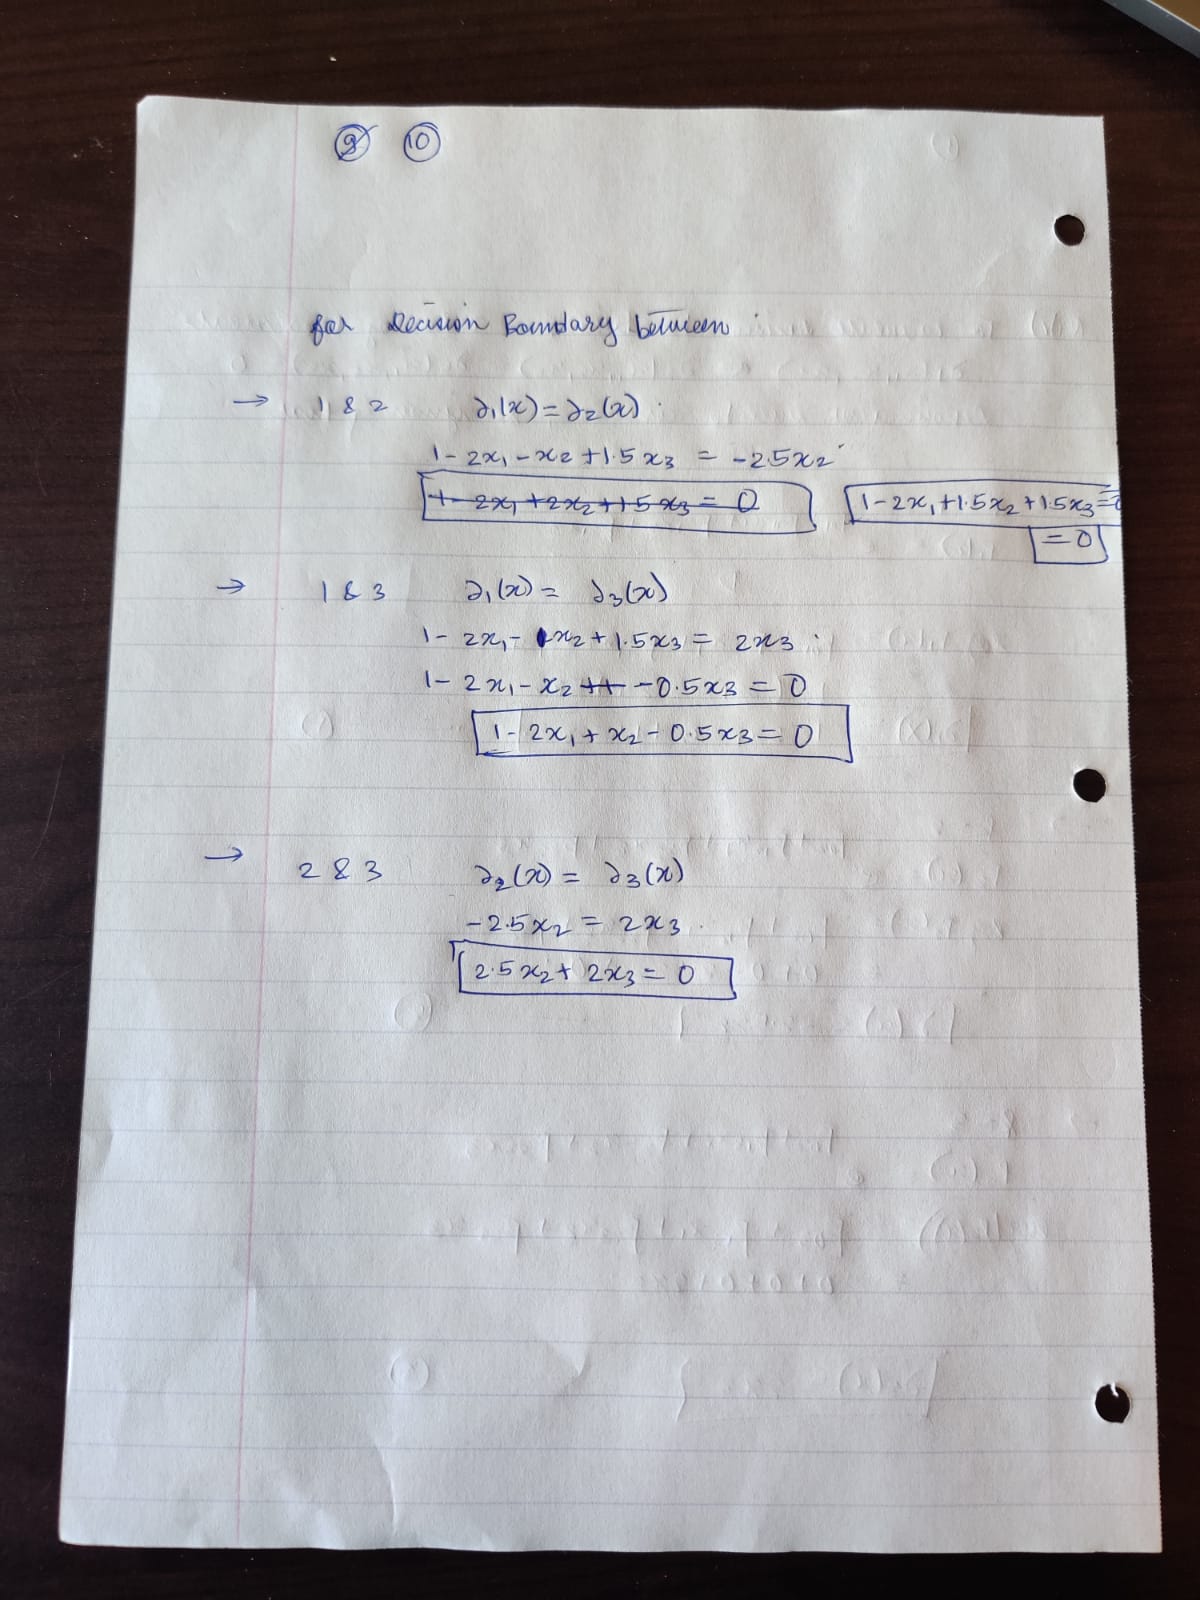 9 10
for Decision Boundary between
→ 1 & 2 ∂₁(x) = ∂₂(x)
1 - 2x₁ - x₂ + 1.5x₃ = -2.5x₂
1 - 2x₁ + 2x₂ + 1.5x₃ = 0 1 - 2x₁ + 1.5x₂ + 1.5x₃ = 0
= 0
→ 1 & 3 ∂₁(x) = ∂₃(x)
1 - 2x₁ - x₂ + 1.5x₃ = 2x₃
1 - 2x₁ - x₂ ++ -0.5x₃ = 0
1 - 2x₁ + x₂ - 0.5x₃ = 0
→ 2 & 3 ∂₂(x) = ∂₃(x)
-2.5x₂ = 2x₃
2.5x₂ + 2x₃ = 0